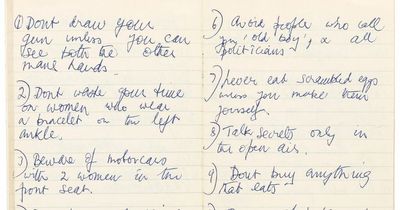 1) Dont draw your
gun unless you can
see both the other
mans hands.
2) Dont waste your time
on women who wear
a bracelet on the left
ankle.
3) Beware of motorcars
with 2 women in the
front seat.
6) Avoid people who call
you 'old boy', & all
politicians.
7) Never eat scrambled eggs
unless you make them
yourself.
8) Talk secrets only in
the open air.
9) Dont buy anything
that eats.